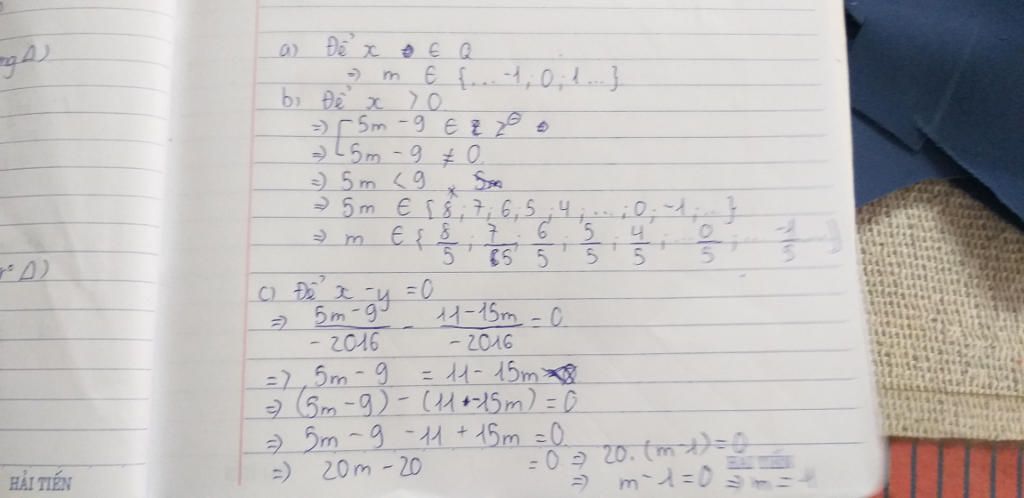 ng Δ)
a) Để x ∈ Q
=> m ∈ {...-1; 0; 1...}
b) Để x > 0
=> [ 5m - 9 ∈ Z^⊖
=> 5m - 9 ≠ 0
=> 5m < 9
=> 5m ∈ {8; 7; 6; 5; 4; ...; 0; -1; ...}
=> m ∈ { 8/5 ; 7/5 ; 6/5 ; 5/5 ; 4/5 ; ... 0/5 ; ... -1/5 }
Δ)
c) Để x - y = 0
=> (5m - 9)/(-2016) - (11 - 15m)/(-2016) = 0
=> 5m - 9 = 11 - 15m
=> (5m - 9) - (11 - 15m) = 0
=> 5m - 9 - 11 + 15m = 0
=> 20m - 20 = 0 => 20.(m - 1) = 0
=> m - 1 = 0 => m = 1
HẢI TIẾN
HẢI TIẾN